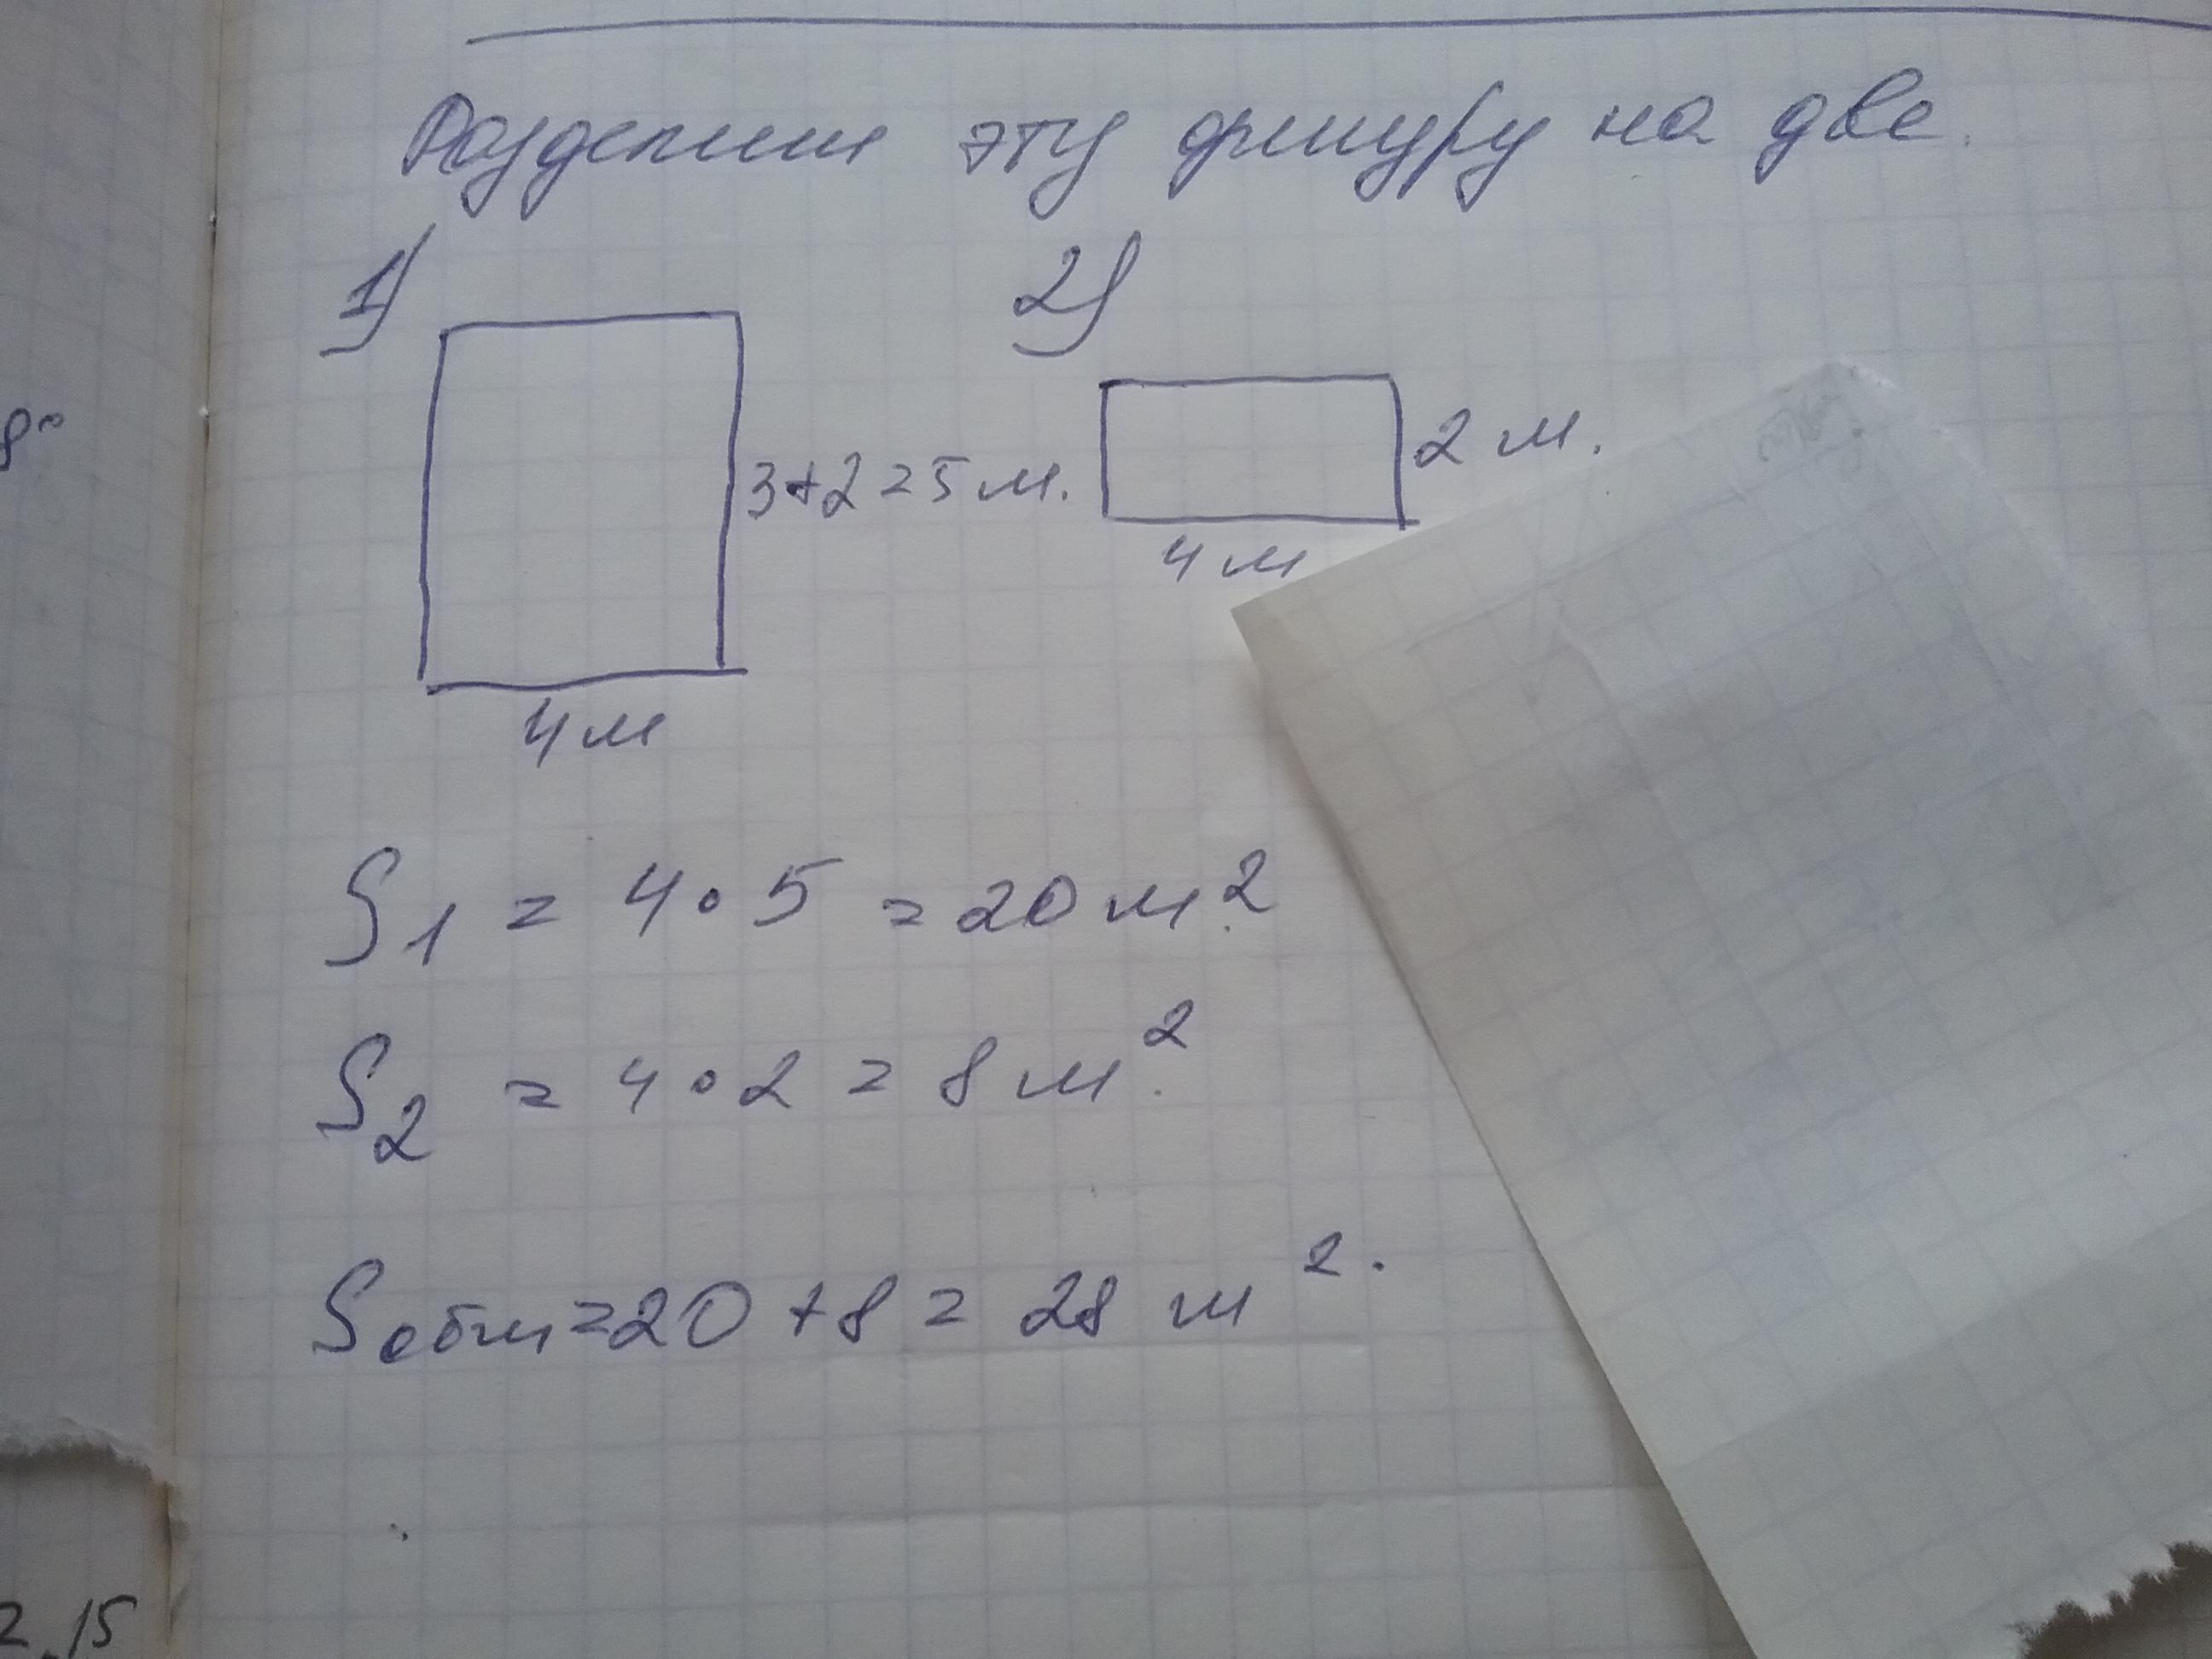 Разделим эту фигуру на две.
1) 2)
3+2=5 м. 2 м.
4 м
4 м
S1 = 4∘5 = 20 м².
S2 = 4∘2 = 8 м².
Sобщ=20+8 = 28 м².
8°
2.15